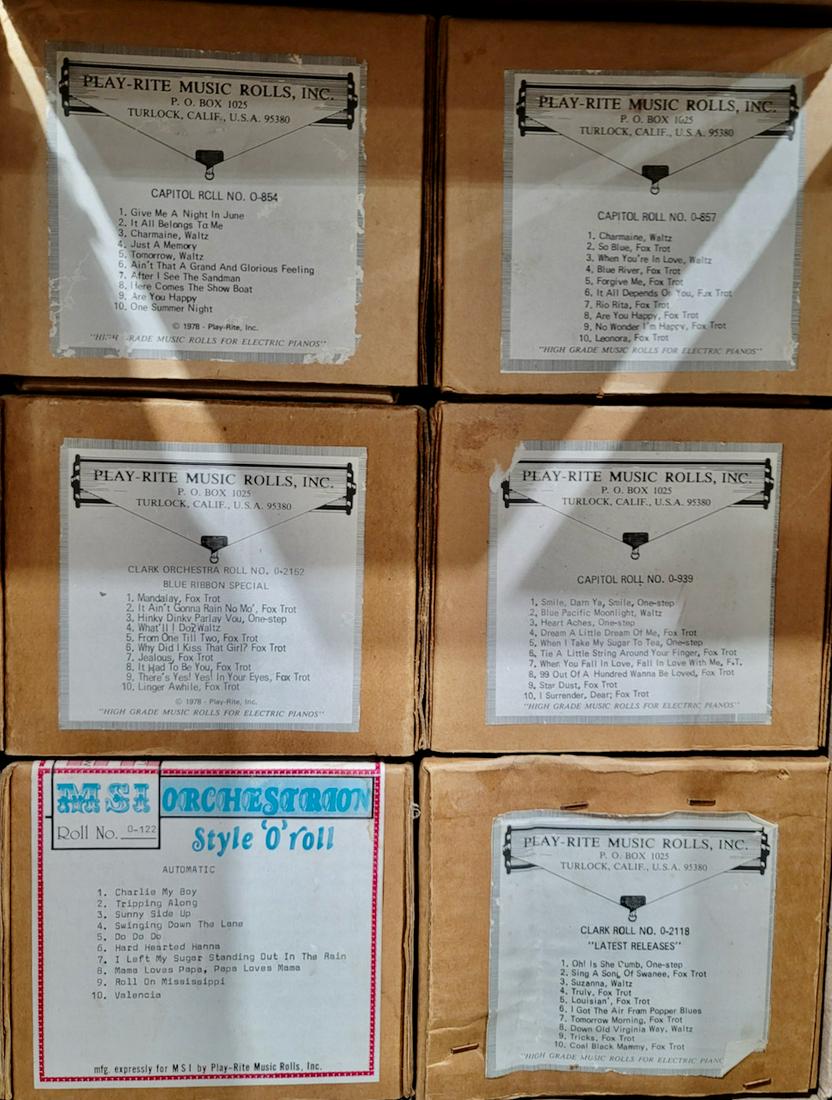 PLAY-RITE MUSIC ROLLS, INC.
P. O. BOX 1025
TURLOCK, CALIF., U.S.A. 95380
CAPITOL ROLL NO. O-854
1. Give Me A Night In June
2. It All Belongs To Me
3. Charmaine, Waltz
4. Just A Memory
5. Tomorrow, Waltz
6. Ain't That A Grand And Glorious Feeling
7. After I See The Sandman
8. Here Comes The Show Boat
9. Are You Happy
10. One Summer Night
© 1978 - Play-Rite, Inc.
"HIGH GRADE MUSIC ROLLS FOR ELECTRIC PIANOS"
PLAY-RITE MUSIC ROLLS, INC.
P. O. BOX 1025
TURLOCK, CALIF., U.S.A. 95380
CAPITOL ROLL NO. 0-857
1. Charmaine, Waltz
2. So Blue, Fox Trot
3. When You're In Love, Waltz
4. Blue River, Fox Trot
5. Forgive Me, Fox Trot
6. It All Depends On You, Fox Trot
7. Rio Rita, Fox Trot
8. Are You Happy, Fox Trot
9. No Wonder I'm Happy, Fox Trot
10. Leonora, Fox Trot
"HIGH GRADE MUSIC ROLLS FOR ELECTRIC PIANOS"
PLAY-RITE MUSIC ROLLS, INC.
P. O. BOX 1025
TURLOCK, CALIF., U.S.A. 95380
CLARK ORCHESTRA ROLL NO. 0-2152
BLUE RIBBON SPECIAL
1. Mandalay, Fox Trot
2. It Ain't Gonna Rain No Mo', Fox Trot
3. Hinky Dinky Parlay Vou, One-step
4. What'll I Do? Waltz
5. From One Till Two, Fox Trot
6. Why Did I Kiss That Girl? Fox Trot
7. Jealous, Fox Trot
8. It Had To Be You, Fox Trot
9. There's Yes! Yes! In Your Eyes, Fox Trot
10. Linger Awhile, Fox Trot
© 1978 - Play-Rite, Inc.
"HIGH GRADE MUSIC ROLLS FOR ELECTRIC PIANOS"
PLAY-RITE MUSIC ROLLS, INC.
P. O. BOX 1025
TURLOCK, CALIF., U.S.A. 95380
CAPITOL ROLL NO. 0-939
1. Smile, Darn Ya, Smile, One-step
2. Blue Pacific Moonlight, Waltz
3. Heart Aches, One-step
4. Dream A Little Dream Of Me, Fox Trot
5. When I Take My Sugar To Tea, One-step
6. Tie A Little String Around Your Finger, Fox Trot
7. When You Fall In Love, Fall In Love With Me, F.T.
8. 99 Out Of A Hundred Wanna Be Loved, Fox Trot
9. Star Dust, Fox Trot
10. I Surrender, Dear; Fox Trot
"HIGH GRADE MUSIC ROLLS FOR ELECTRIC PIANOS"
MSI ORCHESTRION
Roll No. 0-122
Style 'O' roll
AUTOMATIC
1. Charlie My Boy
2. Tripping Along
3. Sunny Side Up
4. Swinging Down The Lane
5. Do Do Do
6. Hard Hearted Hanna
7. I Left My Sugar Standing Out In The Rain
8. Mama Loves Papa, Papa Loves Mama
9. Roll On Mississippi
10. Valencia
mfg. expressly for M S I by Play-Rite Music Rolls, Inc.
PLAY-RITE MUSIC ROLLS, INC.
P. O. BOX 1025
TURLOCK, CALIF., U.S.A. 95380
CLARK ROLL NO. O-2118
"LATEST RELEASES"
1. Oh! Is She Dumb, One-step
2. Sing A Song Of Swanee, Fox Trot
3. Suzanna, Waltz
4. Truly, Fox Trot
5. Louisian', Fox Trot
6. I Got The Air From Popper Blues
7. Tomorrow Morning, Fox Trot
8. Down Old Virginia Way, Waltz
9. Tricks, Fox Trot
10. Coal Black Mammy, Fox Trot
"HIGH GRADE MUSIC ROLLS FOR ELECTRIC PIANO